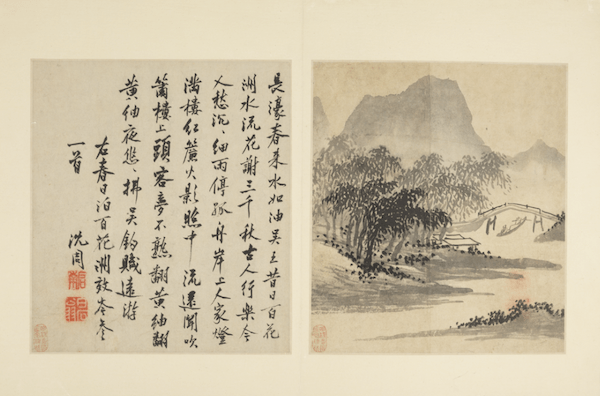 長濠春來水如油吳王昔日百花
洲水流花謝三千秋古人行樂今
人愁沉、細雨停孤舟岸上人家燈
滿樓紅簾火影照中流還聞吹
簫樓上頭客夢不熟翻黃紬翻
黃紬夜悠、拂吳鉤賦遠游
右春日泊百花洲效岑參
一首 沈周